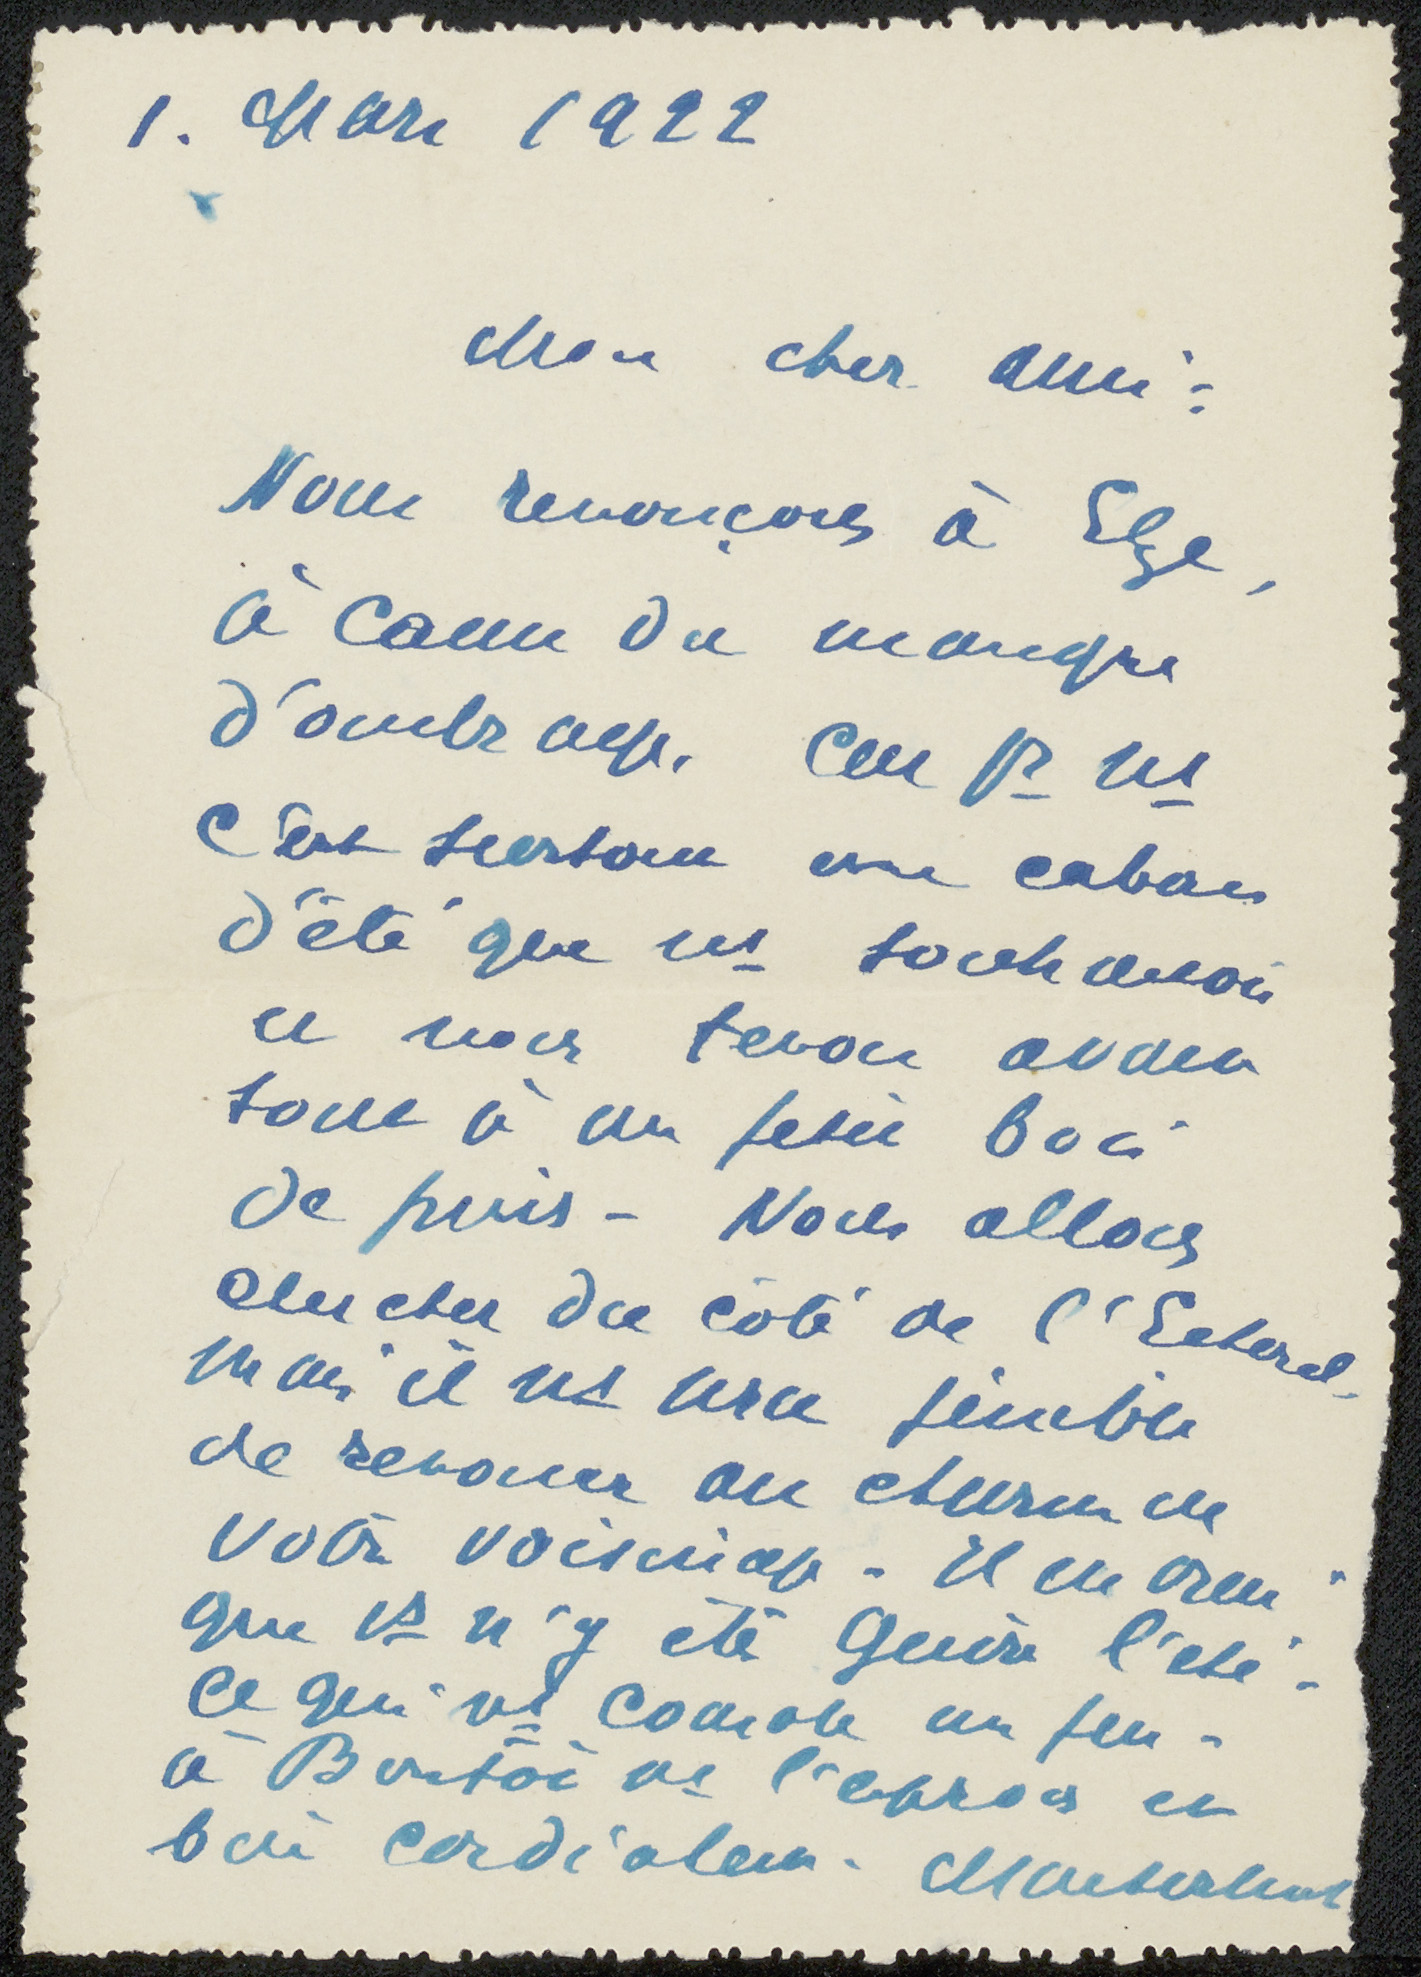 1. Mars 1922
Mon cher ami:
Nous renonçons à Elze,
à cause du manque
d'ombrage. Car pr ns
c'est surtout une cabane
d'été que ns souhaitons
et nous tenons avant
tout à un petit bois
de pins - Nous allons
chercher du côté de l'Esterel.
mais il ns sera pénible
de renoncer au charme de
votre voisinage - Il est vrai
que vs n'y êtes guère l'été -
ce qui ns console un peu -
à Bientôt ns l'espérons et
bien cordialement. Maeterlinck